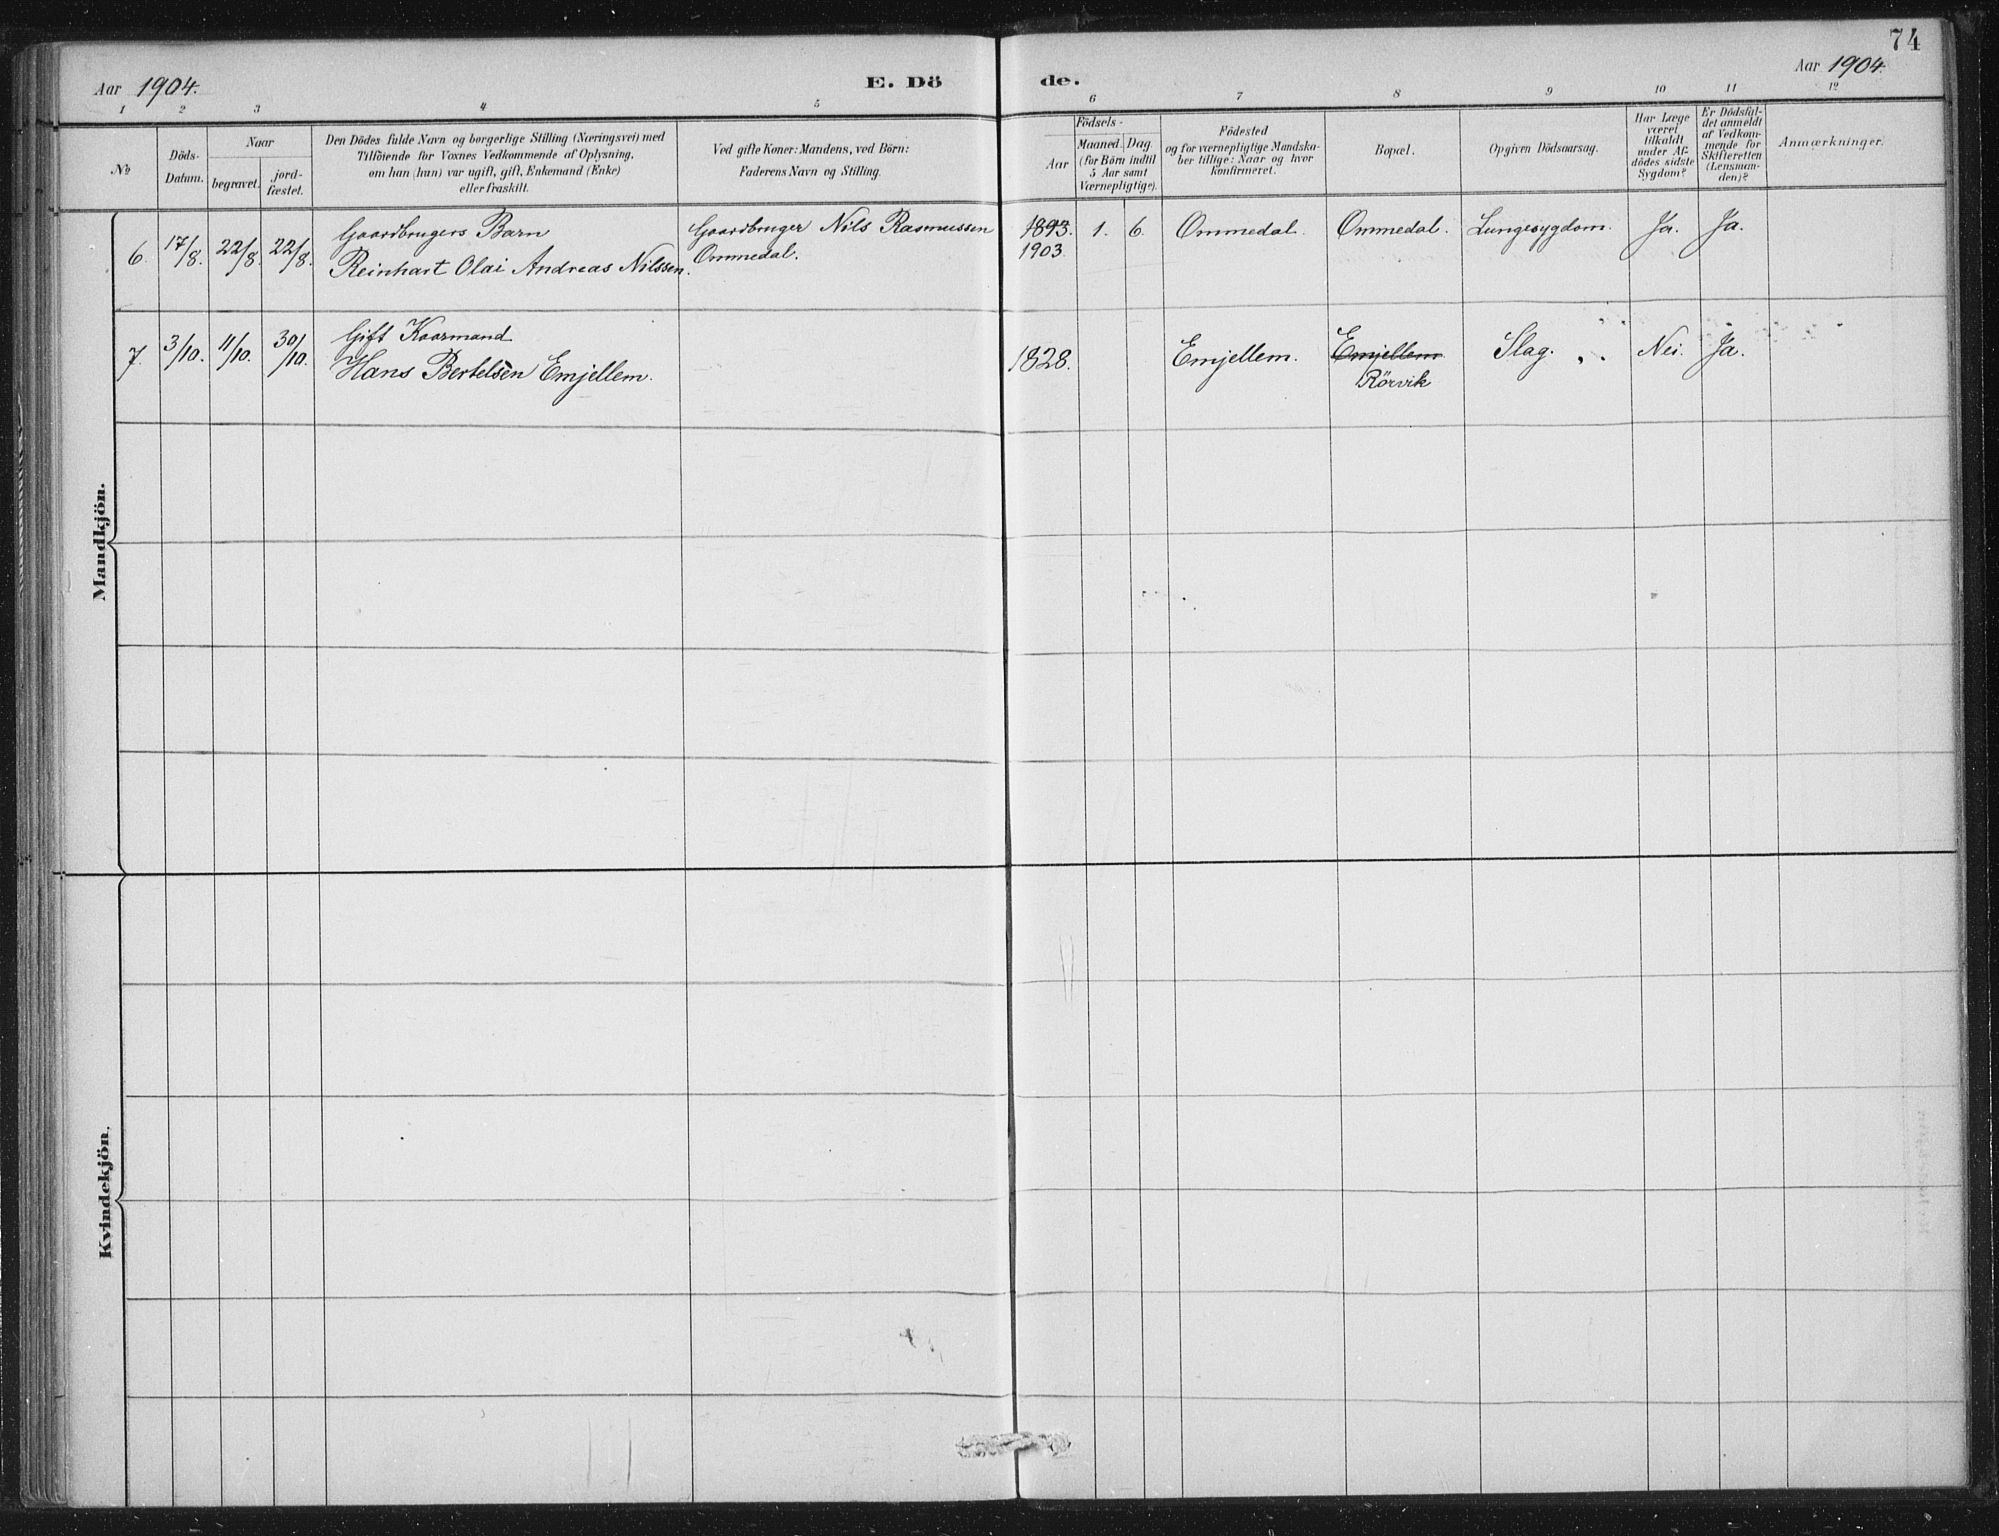 74
Aar 1904.
E. Dö
de.
Aar 1904.
1 2 3 4 5 6 7 8 9 10 11 12
No
Döds-
Datum.
Naar
begravet.
jord-
fæstet.
Den Dödes fulde Navn og borgerlige Stilling (Næringsvei) med
Tilföiende for Voxnes Vedkommende af Oplysning,
om han (hun) var ugift, gift, Enkemand (Enke)
eller fraskilt.
Ved gifte Koner: Mandens, ved Börn:
Faderens Navn og Stilling.
Födsels-
Aar
Maaned. Dag.
(for Börn indtil
5 Aar samt
Værnepligtige).
Födested
og for værnepligtige Mandska-
ber tillige: Naar og hvor
konfirmeret.
Bopæl.
Opgiven Dödsaarsag.
Har Læge
været
tilkaldt
under Af-
dödes sidste
Sygdom?
Er Dödsfal-
det anmeldt
af Vedkom-
mende for
Skifteretten
(Lensman-
den)?
Anmærkninger.
Mandkjön.
6. 17/8. 22/8. 22/8.
Gaardbrugers Barn
Reinhart Olai Andreas Nilssen.
Gaardbruger Nils Rasmussen
Ommedal.
1893.
1903.
1. 6. Ommedal. Ommedal. Lungesygdom. Ja. Ja.
7. 3/10. 11/10. 30/10.
Gift Kaarmand
Hans Bertelsen Emjellem.
1828. Emjellem. Emjellem
Rörvik
Slag. Nei. Ja.
Kvindekjön.